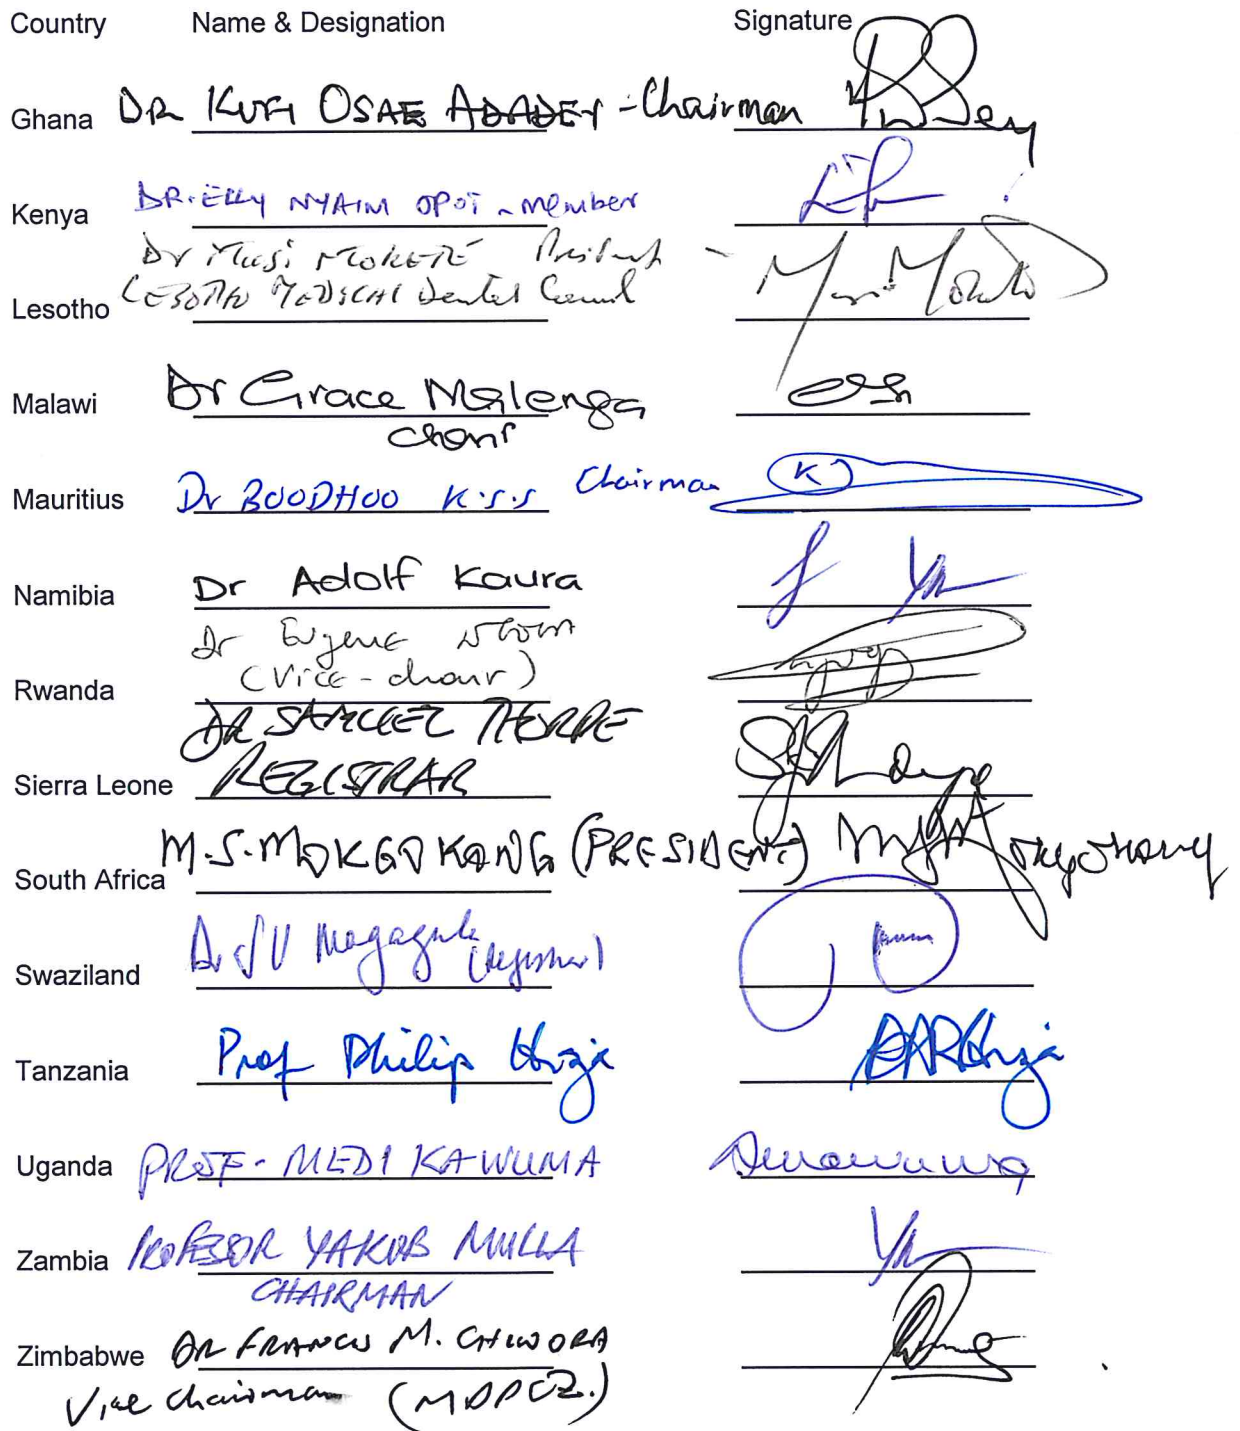 Country Name & Designation Signature
Ghana DR KOFI OSAE ADADEY - Chairman
Kenya DR. ELLY NYAIM OPOT - member
Dr Musi MOKETE President
Lesotho LESOTHO MEDICAL Dental Council
Malawi Dr Grace Malenga
Chair
Mauritius Dr BOODHOO K.S.S Chairman K
Namibia Dr Adolf Kaura
Dr Eugene
Rwanda (Vice-chair)
DR SAMUEL THORPE
Sierra Leone REGISTRAR
South Africa M.S. MOKGOKONG (PRESIDENT)
Swaziland Dr S V Magagula (Registrar)
Tanzania Prof Philip Hiza
Uganda PROF. MEDI KAWUMA
Zambia PROFESSOR YAKUB MULLA
CHAIRMAN
Zimbabwe DR FRANCIS M. CHIWORA
Vice Chairman (MDPCZ.)